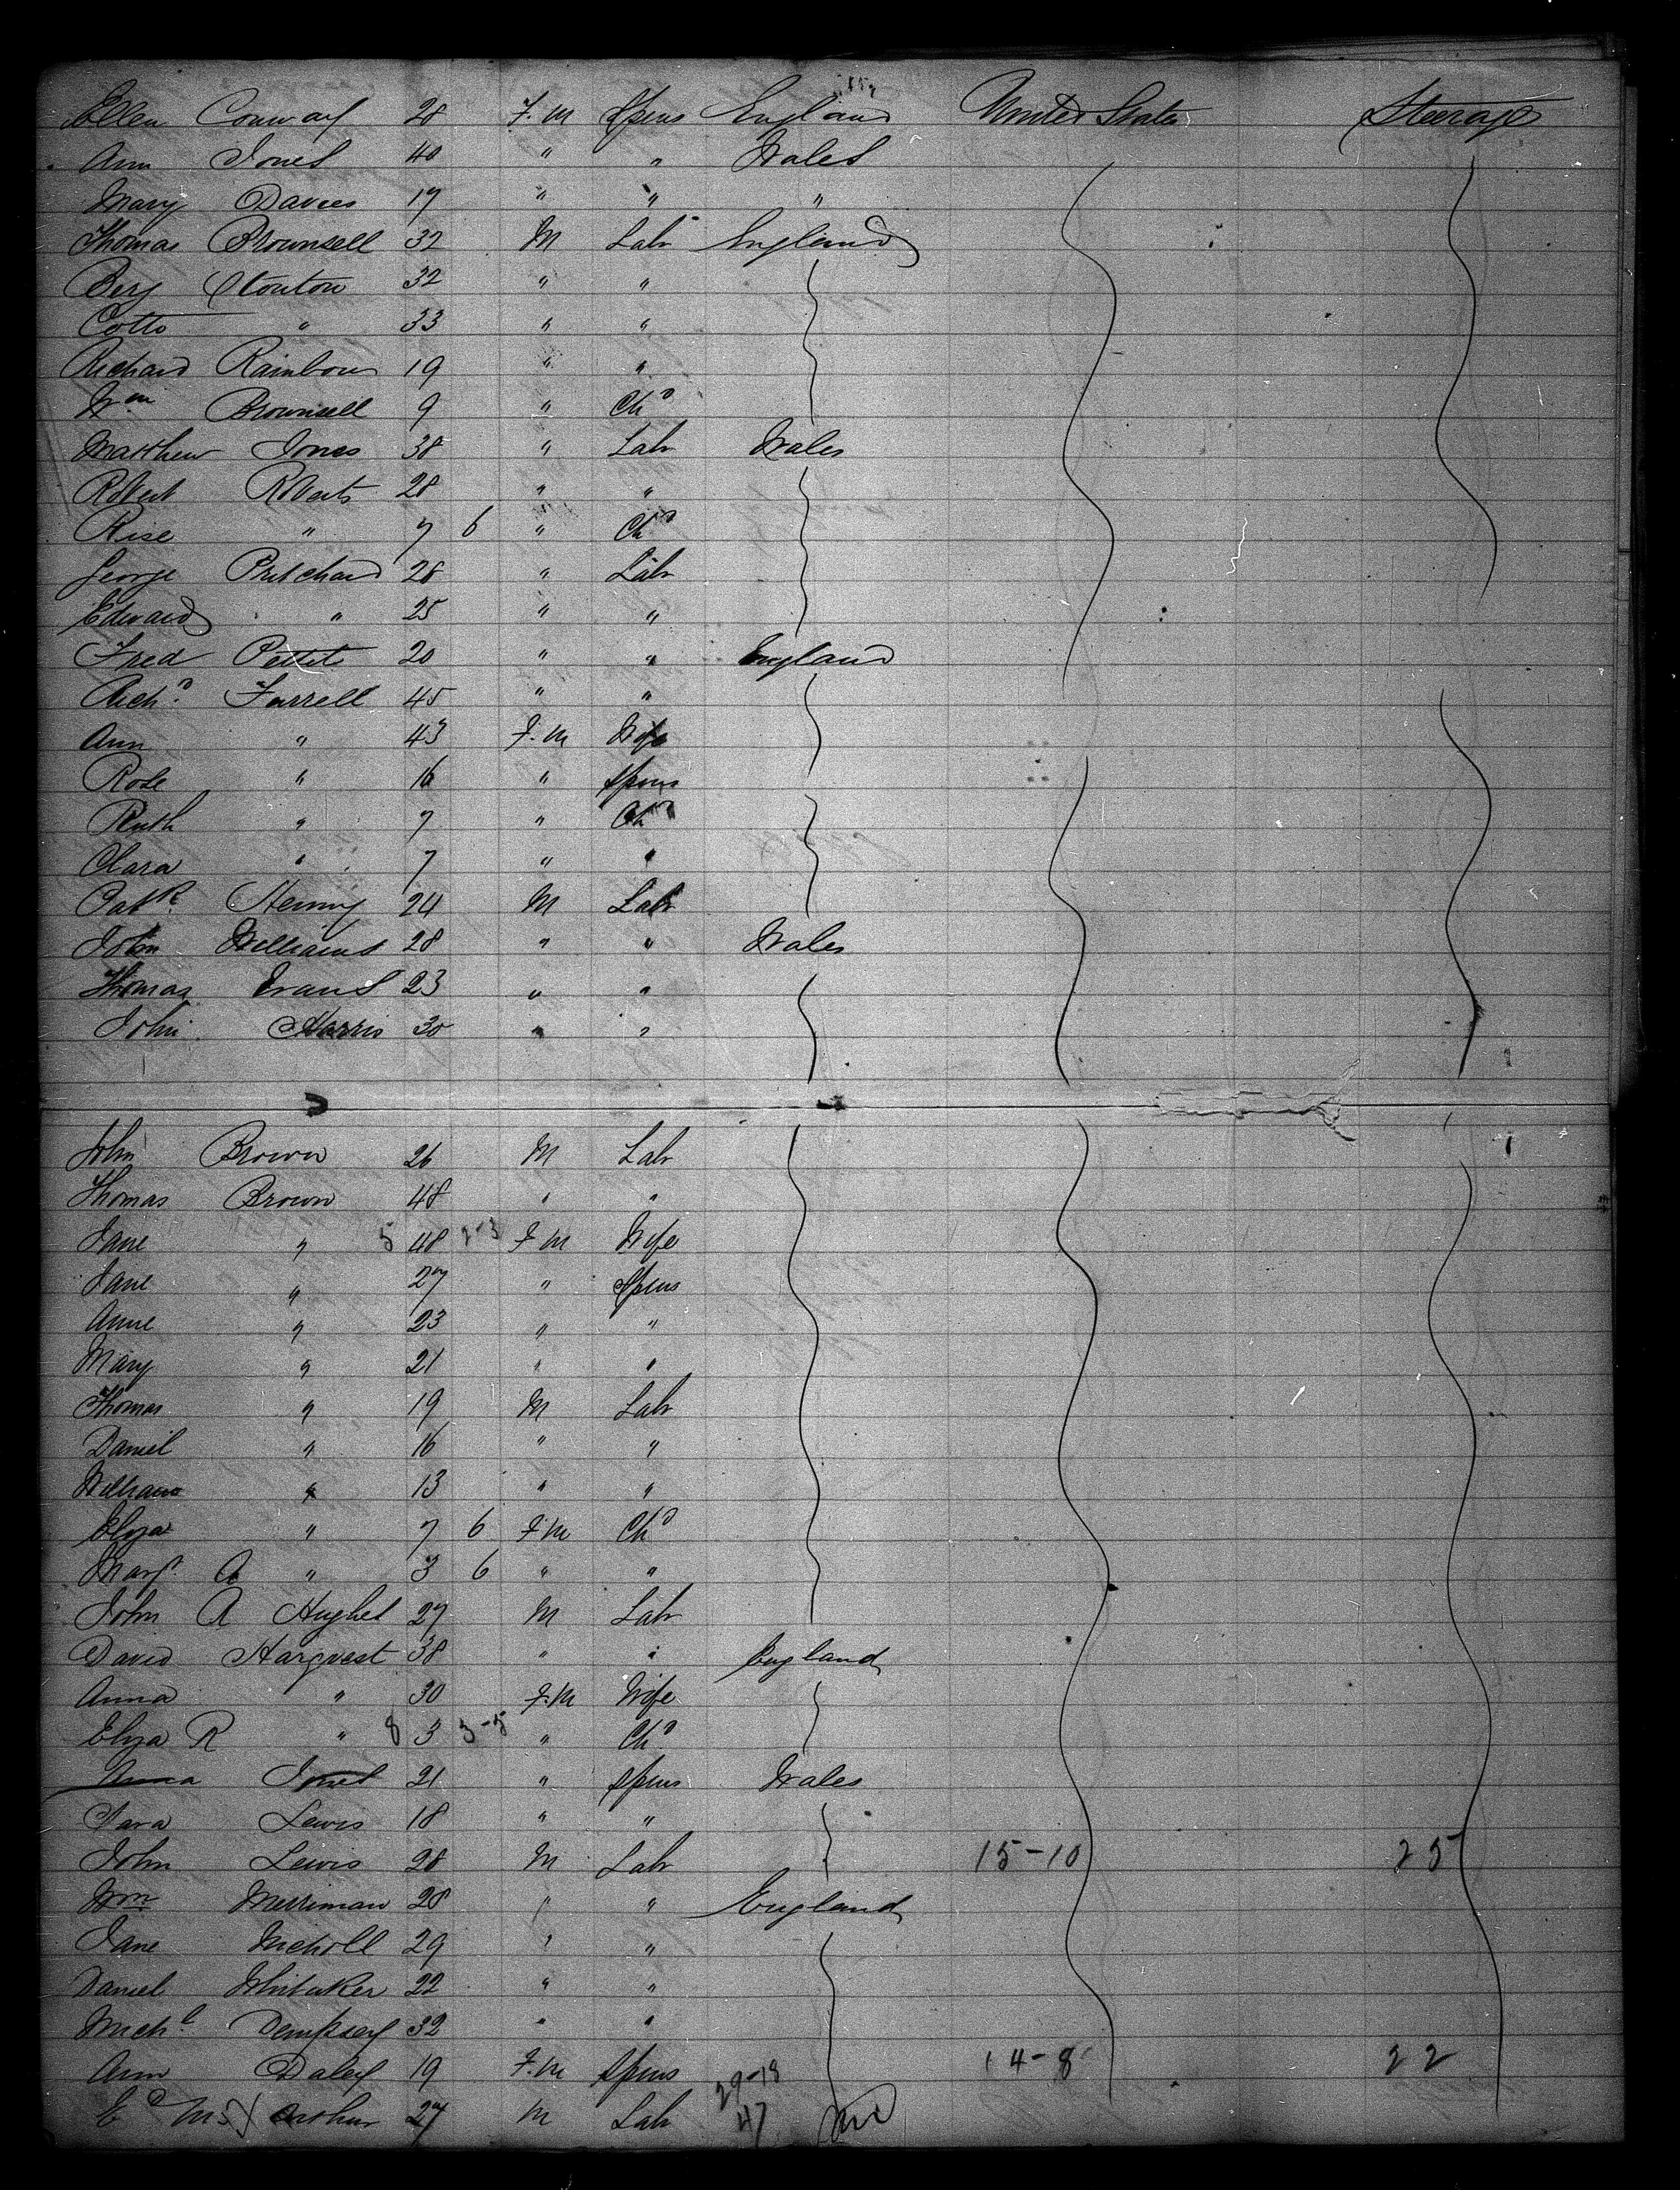 Ellen Conway 28 F.M Spins England United States Steerage
Ann Jones 40 " " Wales
Mary Davies 17 " " "
Thomas Brownsell 32 M Labr England
Benj Stonton 32 " "
Cotto " 33 " "
Richard Rainbow 19 " "
Wm Brownsell 9 " Chd
Matthew Jones 38 " Labr Wales
Robert Roberts 28 " "
Rise " 7 6 " Chd
George Pritchard 28 " Labr
Edward " 25 " "
Fred Pettit 20 " " England
Richd Farrell 45 " "
Ann " 43 F.M Wife
Rose " 16 " Spins
Ruth " 7 " Chd
Clara " 7 " "
Patk Henny 24 M Labr
John Williams 28 " " Wales
Thomas Evans 23 " "
John Harris 30 " "
John Brown 26 M Labr
Thomas Brown 48 " "
Jane " 5 48 2-3 F M Wife
Jane " 27 " Spins
Anne " 23 " "
Mary " 21 " "
Thomas " 19 M Labr
Daniel " 16 " "
William " 13 " "
Eliza " 7 6 F M Chd
Margt A " 3 6 " "
John A Hughes 27 M Labr
David Hargvest 38 " " England
Anna " 30 F.M Wife
Eliza R " 8 3 3-5 " Chd
Anna Jones 21 " Spins Wales
Sara Lewis 18 " "
John Lewis 28 M Labr 15-10 25
Wm Merriman 28 " " England
Jane Nicholl 29 " "
Daniel Whitaker 22 " "
Michl Dempsey 32 " "
Ann Daley 19 F.M Spins 29-18 14-8 22
Ed Arthur 27 M Labr 47